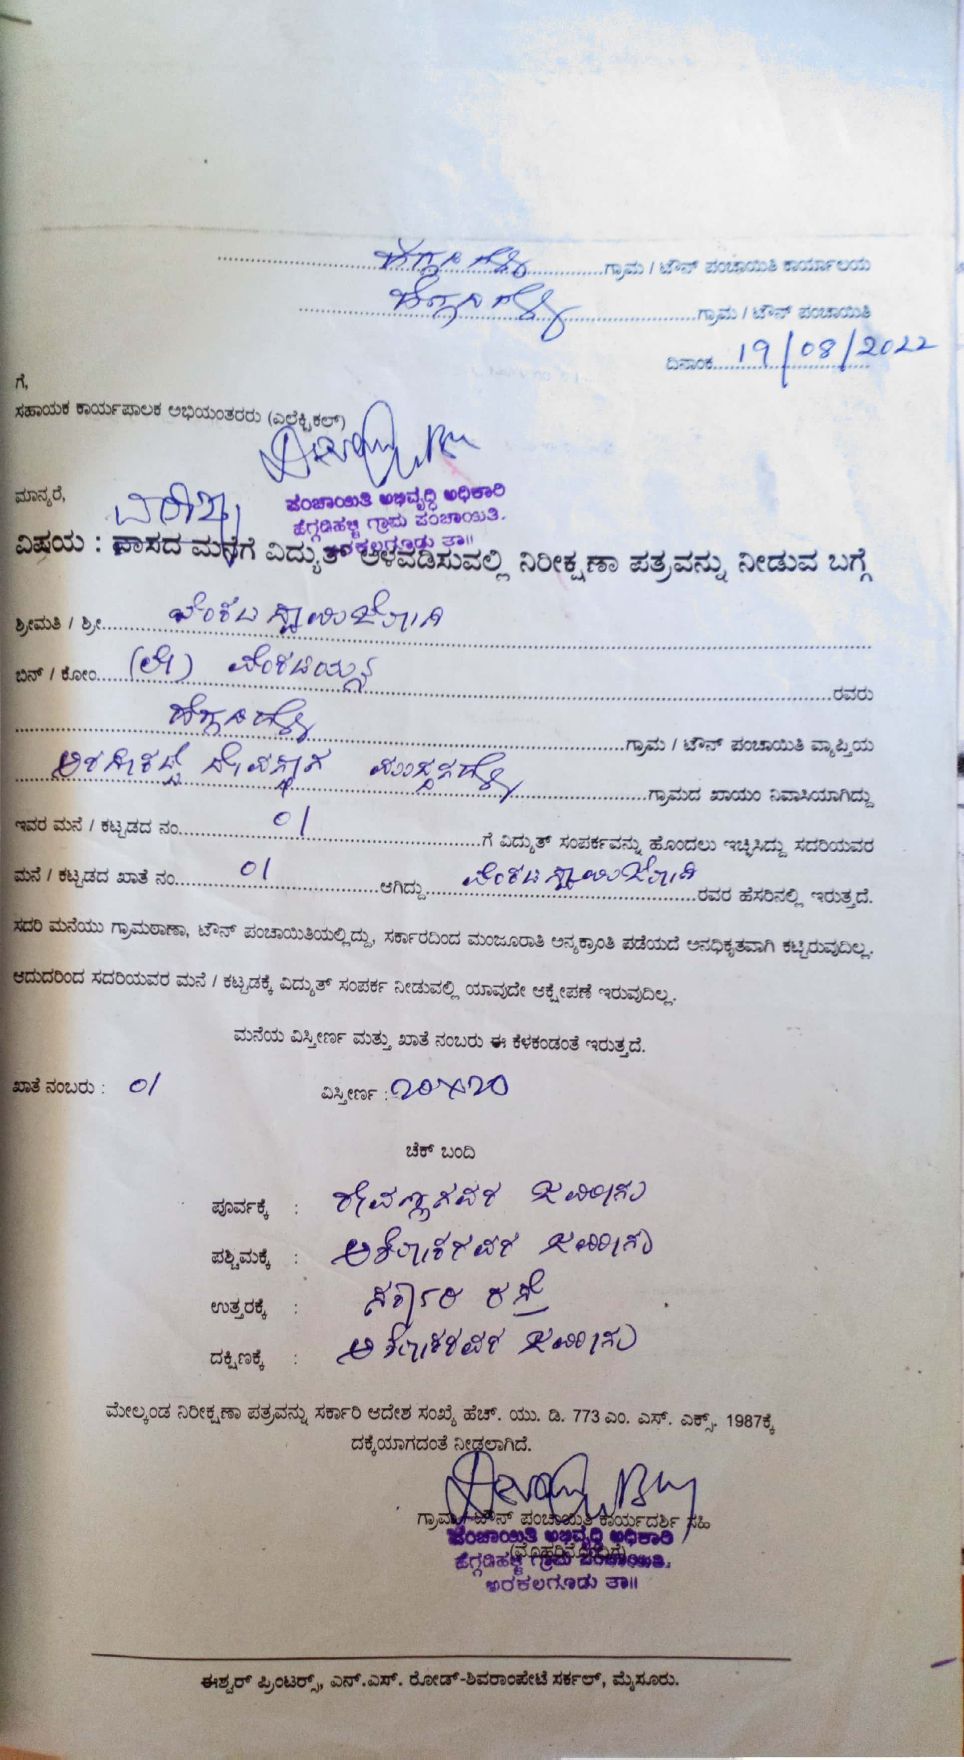 ಹೆಗ್ಗಡಿಹಳ್ಳಿ ಗ್ರಾಮ / ಟೌನ್ ಪಂಚಾಯಿತಿ ಕಾರ್ಯಾಲಯ
ಹೆಗ್ಗಡಿಹಳ್ಳಿ ಗ್ರಾಮ / ಟೌನ್ ಪಂಚಾಯಿತಿ
ದಿನಾಂಕ 19/08/2022
ಗೆ,
ಸಹಾಯಕ ಕಾರ್ಯಪಾಲಕ ಅಭಿಯಂತರರು (ಎಲೆಕ್ಟ್ರಿಕಲ್)
ಮಾನ್ಯರೆ,
ಪಂಚಾಯಿತಿ ಅಭಿವೃದ್ಧಿ ಅಧಿಕಾರಿ
ಹೆಗ್ಗಡಿಹಳ್ಳಿ ಗ್ರಾಮ ಪಂಚಾಯಿತಿ.
ಅರಕಲಗೂಡು ತಾ॥
ವಿಷಯ : ವಾಸದ ಮನೆಗೆ ವಿದ್ಯುತ್ ಅಳವಡಿಸುವಲ್ಲಿ ನಿರೀಕ್ಷಣಾ ಪತ್ರವನ್ನು ನೀಡುವ ಬಗ್ಗೆ
ಶ್ರೀಮತಿ / ಶ್ರೀ ವೆಂಕಟಸ್ವಾಮಿಜೋಗಿ
ಬಿನ್ / ಕೋಂ (ಲೇ) ವೆಂಕಟಯ್ಯ ರವರು
ಹೆಗ್ಗಡಿಹಳ್ಳಿ ಗ್ರಾಮ / ಟೌನ್ ಪಂಚಾಯಿತಿ ವ್ಯಾಪ್ತಿಯ
ದೇವಸ್ಥಾನ ಗ್ರಾಮದ ಖಾಯಂ ನಿವಾಸಿಯಾಗಿದ್ದು
ಇವರ ಮನೆ / ಕಟ್ಟಡದ ನಂ 01 ಗೆ ವಿದ್ಯುತ್ ಸಂಪರ್ಕವನ್ನು ಹೊಂದಲು ಇಚ್ಛಿಸಿದ್ದು ಸದರಿಯವರ
ಮನೆ / ಕಟ್ಟಡದ ಖಾತೆ ನಂ 01 ಆಗಿದ್ದು ವೆಂಕಟಸ್ವಾಮಿಜೋಗಿ ರವರ ಹೆಸರಿನಲ್ಲಿ ಇರುತ್ತದೆ.
ಸದರಿ ಮನೆಯು ಗ್ರಾಮಠಾಣಾ, ಟೌನ್ ಪಂಚಾಯಿತಿಯಲ್ಲಿದ್ದು, ಸರ್ಕಾರದಿಂದ ಮಂಜೂರಾತಿ ಅನ್ಯಕ್ರಾಂತಿ ಪಡೆಯದೆ ಅನಧಿಕೃತವಾಗಿ ಕಟ್ಟಿರುವುದಿಲ್ಲ.
ಆದುದರಿಂದ ಸದರಿಯವರ ಮನೆ / ಕಟ್ಟಡಕ್ಕೆ ವಿದ್ಯುತ್ ಸಂಪರ್ಕ ನೀಡುವಲ್ಲಿ ಯಾವುದೇ ಆಕ್ಷೇಪಣೆ ಇರುವುದಿಲ್ಲ.
ಮನೆಯ ವಿಸ್ತೀರ್ಣ ಮತ್ತು ಖಾತೆ ನಂಬರು ಈ ಕೆಳಕಂಡಂತೆ ಇರುತ್ತದೆ.
ಖಾತೆ ನಂಬರು : 01 ವಿಸ್ತೀರ್ಣ : 20x20
ಚೆಕ್ ಬಂದಿ
ಪೂರ್ವಕ್ಕೆ : ರೇವಣ್ಣನವರ ಜಮೀನು
ಪಶ್ಚಿಮಕ್ಕೆ : ಅಶೋಕನವರ ಜಮೀನು
ಉತ್ತರಕ್ಕೆ : ಸರ್ಕಾರಿ ರಸ್ತೆ
ದಕ್ಷಿಣಕ್ಕೆ : ಅಶೋಕರವರ ಜಮೀನು
ಮೇಲ್ಕಂಡ ನಿರೀಕ್ಷಣಾ ಪತ್ರವನ್ನು ಸರ್ಕಾರಿ ಆದೇಶ ಸಂಖ್ಯೆ ಹೆಚ್. ಯು. ಡಿ. 773 ಎಂ. ಎಸ್. ಎಕ್ಸ್. 1987ಕ್ಕೆ
ದಕ್ಕೆಯಾಗದಂತೆ ನೀಡಲಾಗಿದೆ.
ಗ್ರಾಮ / ಟೌನ್ ಪಂಚಾಯಿತಿ ಕಾರ್ಯದರ್ಶಿ ಸಹಿ
(ಮೊಹರಿನೊಂದಿಗೆ)
ಪಂಚಾಯಿತಿ ಅಭಿವೃದ್ಧಿ ಅಧಿಕಾರಿ
ಹೆಗ್ಗಡಿಹಳ್ಳಿ ಗ್ರಾಮ ಪಂಚಾಯಿತಿ.
ಅರಕಲಗೂಡು ತಾ॥
ಈಶ್ವರ್ ಪ್ರಿಂಟರ್ಸ್, ಎನ್.ಎಸ್. ರೋಡ್-ಶಿವರಾಂಪೇಟೆ ಸರ್ಕಲ್, ಮೈಸೂರು.